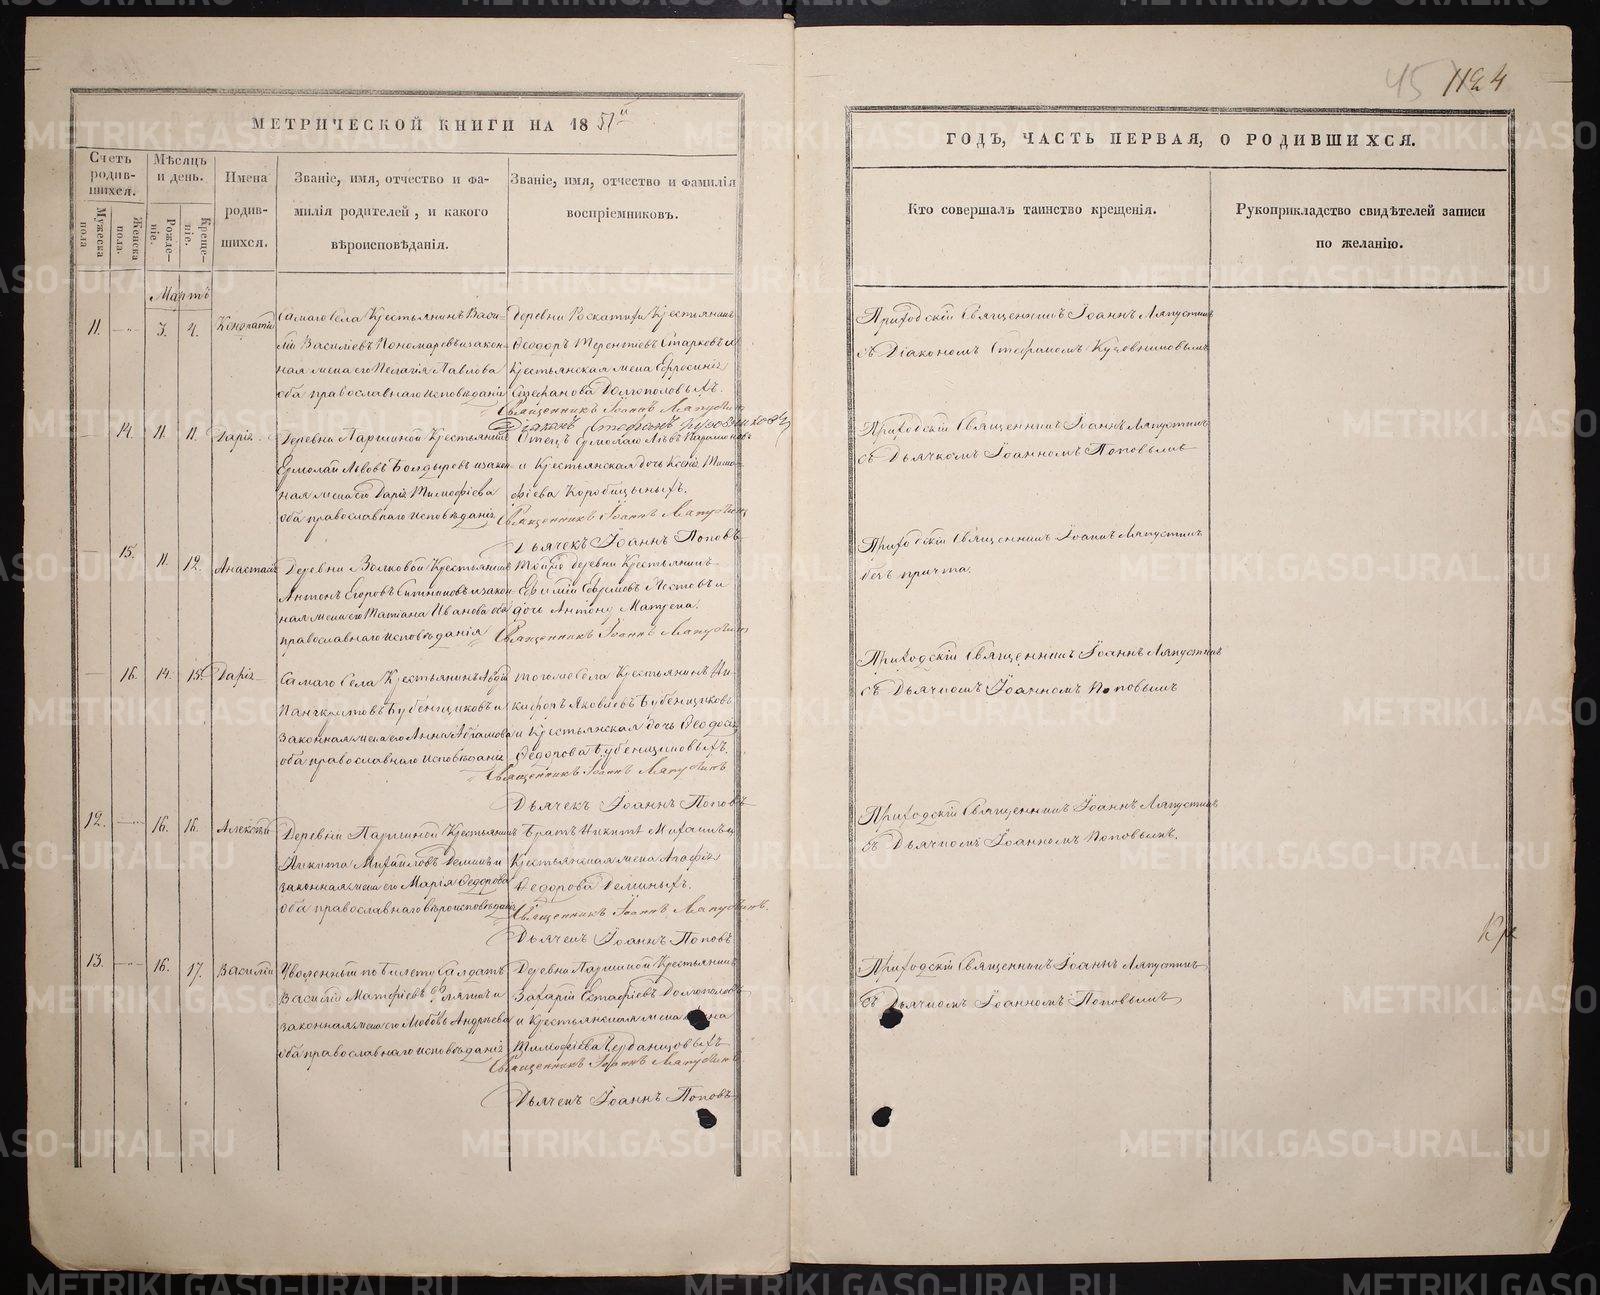 45 1124
МЕТРИЧЕСКОЙ КНИГИ НА 1851й
ГОДЪ, ЧАСТЬ ПЕРВАЯ, О РОДИВШИХСЯ.
Счетъ родив-шихся.
Мужеска пола
Женска пола.
Мѣсяцъ и день.
Рожде-ніе.
Креще-ніе.
Имена
родив-
шихся.
Званіе, имя, отчество и фа-
милія родителей, и какого
вѣроисповѣданія.
Званіе, имя, отчество и фамилія
воспріемниковъ.
Кто совершалъ таинство крещенія.
Рукоприкладство свидѣтелей записи
по желанію.
Мартъ
11. 3. 4. Кондратій
Самаго Села Крестьянинъ Васи-
лій Василіевъ Пономаревъ и закон-
ная жена его Пелагія Павлова
оба православнаго исповѣданія
Деревни Крестьянинъ
Ѳеодоръ Терентіевъ Старковъ и
Крестьянская жена Евфросинія
Стефанова Долгополовыхъ.
Священникъ Іоаннъ Ляпустинъ
Діаконъ Стефанъ
Приходскій Священникъ Іоаннъ Ляпустинъ
съ Діакономъ Стефаномъ
14. 11. 11. Дарія
Деревни Паршиной Крестьянинъ
Ермолай Львовъ Болдыревъ и закон-
ная жена его Дарія Тимофіева
оба православнаго исповѣданія
Отецъ Ермолаю Львъ
и Крестьянская дочь Ксенія Тимо-
фіева Коробицыныхъ.
Священникъ Іоаннъ Ляпустинъ
Дьячекъ Іоаннъ Поповъ
Приходскій Священникъ Іоаннъ Ляпустинъ
съ Дьячкомъ Іоанномъ Поповымъ
15. 11. 12. Анастасія
Деревни Волковой Крестьянинъ
Антонъ Егоровъ Ситниковъ и закон-
ная жена его Татіана Иванова оба
православнаго исповѣданія
Тойже деревни Крестьянинъ
Ефимій
дочь Антону Матрена.
Священникъ Іоаннъ Ляпустинъ
Приходскій Священникъ Іоаннъ Ляпустинъ
безъ причта.
16. 14. 15. Дарія
Самаго Села Крестьянинъ Авдій
Панкратовъ Бубенщиковъ и
законная жена его Анна Абрамова
оба православнаго исповѣданія
тогоже Села Крестьянинъ Ни-
кифоръ Яковлевъ Бубенщиковъ
и Крестьянская дочь Ѳеодосія
Ѳедорова Бубенщиковыхъ.
Священникъ Іоаннъ Ляпустинъ
Дьячекъ Іоаннъ Поповъ
Приходскій Священникъ Іоаннъ Ляпустинъ
съ Дьячкомъ Іоанномъ Поповымъ
12. 16. 16. Алексѣй
Деревни Паршиной Крестьянинъ
Никита Михайловъ Деминъ и
законная жена его Марія Ѳедорова
оба православнаго вѣроисповѣданія
Братъ Никитѣ Михаилъ и
Крестьянская жена Агафія
Ѳедорова Деминыхъ.
Священникъ Іоаннъ Ляпустинъ.
Дьячекъ Іоаннъ Поповъ
Приходскій Священникъ Іоаннъ Ляпустинъ
съ Дьячкомъ Іоанномъ Поповымъ.
13. 16. 17. Василій
Уволенный по билету Салдатъ
Василій Матфіевъ и
законная жена его Любовь Андреева
оба православнаго исповѣданія
Деревни Паршиной Крестьянинъ
Захарій Евстафіевъ Долгополовъ
и Крестьянская жена
Тимофіева
Священникъ Іоаннъ Ляпустинъ
Дьячекъ Іоаннъ Поповъ
Приходскій Священникъ Іоаннъ Ляпустинъ
съ Дьячкомъ Іоанномъ Поповымъ
METRIKI.GASO-URAL.RU